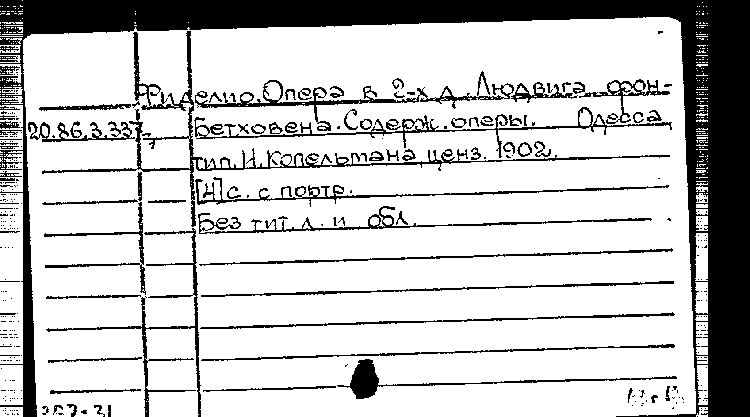 Фиделио. Опера в 2-х д. Людвига фон-
20.86.3.337 Бетховена. Содерж. оперы. Одесса,
тип. И. Копельмана, ценз. 1902.
[4] с. с портр.
Без тит. л. и обл.